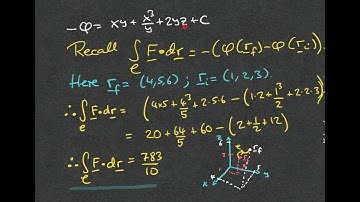 -φ = xy + x³/y + 2yz + C
Recall ∫_C F·dr = -(φ(r_f) - φ(r_i)).
Here r_f = (4,5,6) ; r_i = (1,2,3).
∴ ∫_C F·dr = (4×5 + 4³/5 + 2·5·6 - (1·2 + 1³/2 + 2·2·3)
= 20 + 64/5 + 60 - (2 + 1/2 + 12)
∴ ∫_C F·dr = 783/10